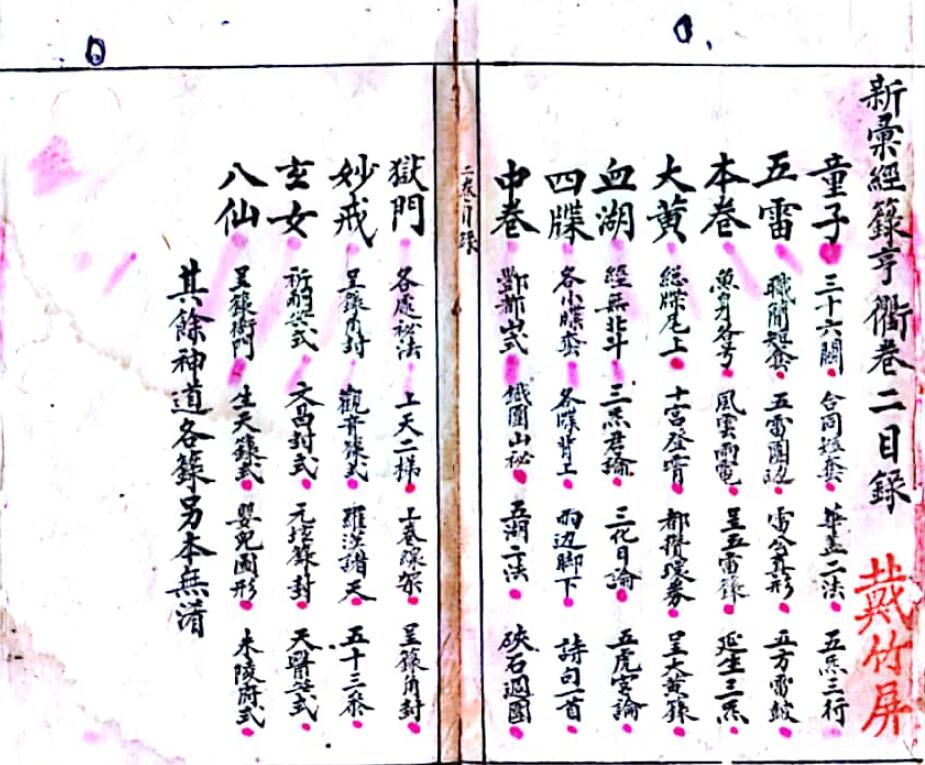 新彙經籙亨衢卷二目錄
戴竹屏
童子 三十六關 合同短套 華蓋二法 五炁三行
五雷 職關短套 五雷圖改 雷公真形 五方雷皷
本卷 魚身各号 風雲雨電 呈五雷籙 延生三炁
大黄 總牒尾上 十宮登霄 都攢環券 呈大黄籙
血湖 經無北斗 三炁君 三花日論 五虎宮論
四牒 各小牒套 各牒背上 两边脚下 詩句一首
中卷 酆都山式 鐡圍山秘 五湖一法 硤石週圍
二卷目錄
獄門 各處秘法 上天二梯 上卷線架 呈籙角封
妙戒 呈籙角封 觀音籙式 羅漢諸天 五十三叅
玄女 祈嗣式 文昌封式 元坛籙封 天醫式
八仙 呈籙衙門 生天籙式 嬰兒圖形 朱陵府式
其餘神道各籙另本無淆